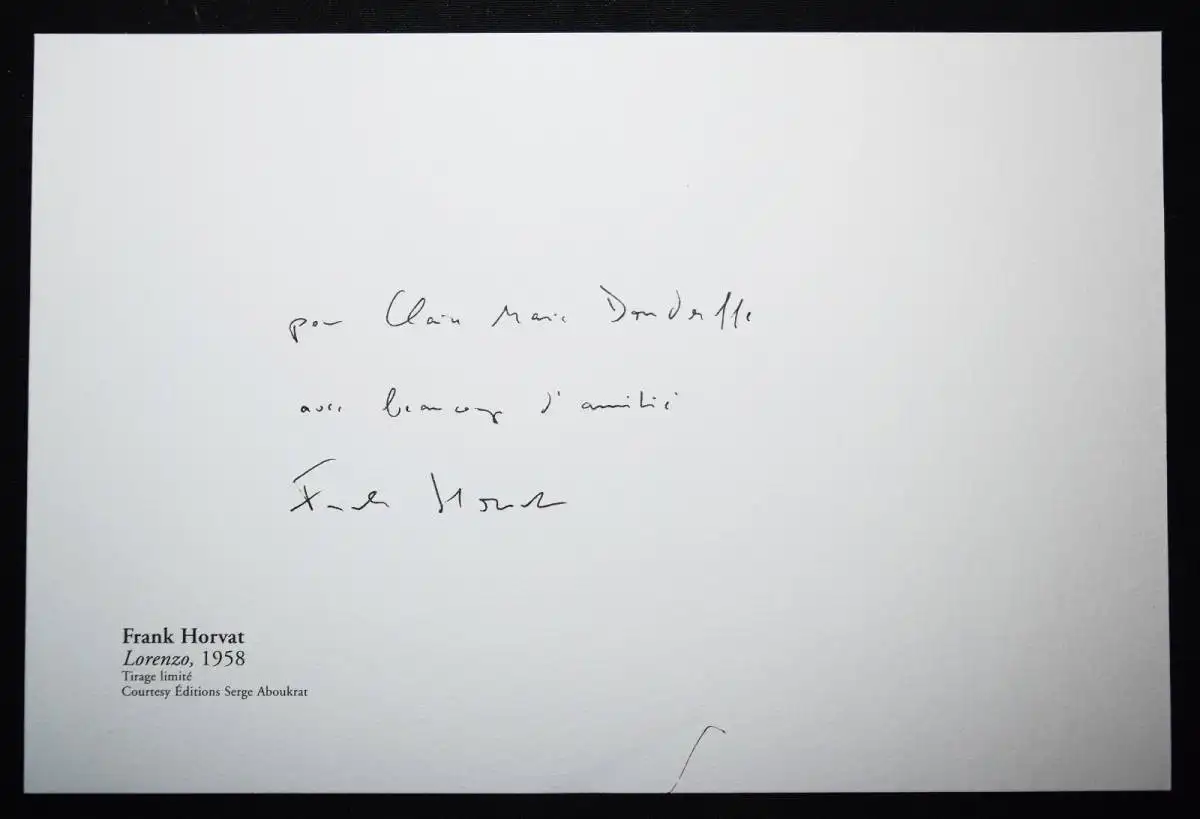 pour Claire Marie
avec beaucoup d'amitié
Frank Horvat
Frank Horvat
Lorenzo, 1958
Tirage limité
Courtesy Éditions Serge Aboukrat